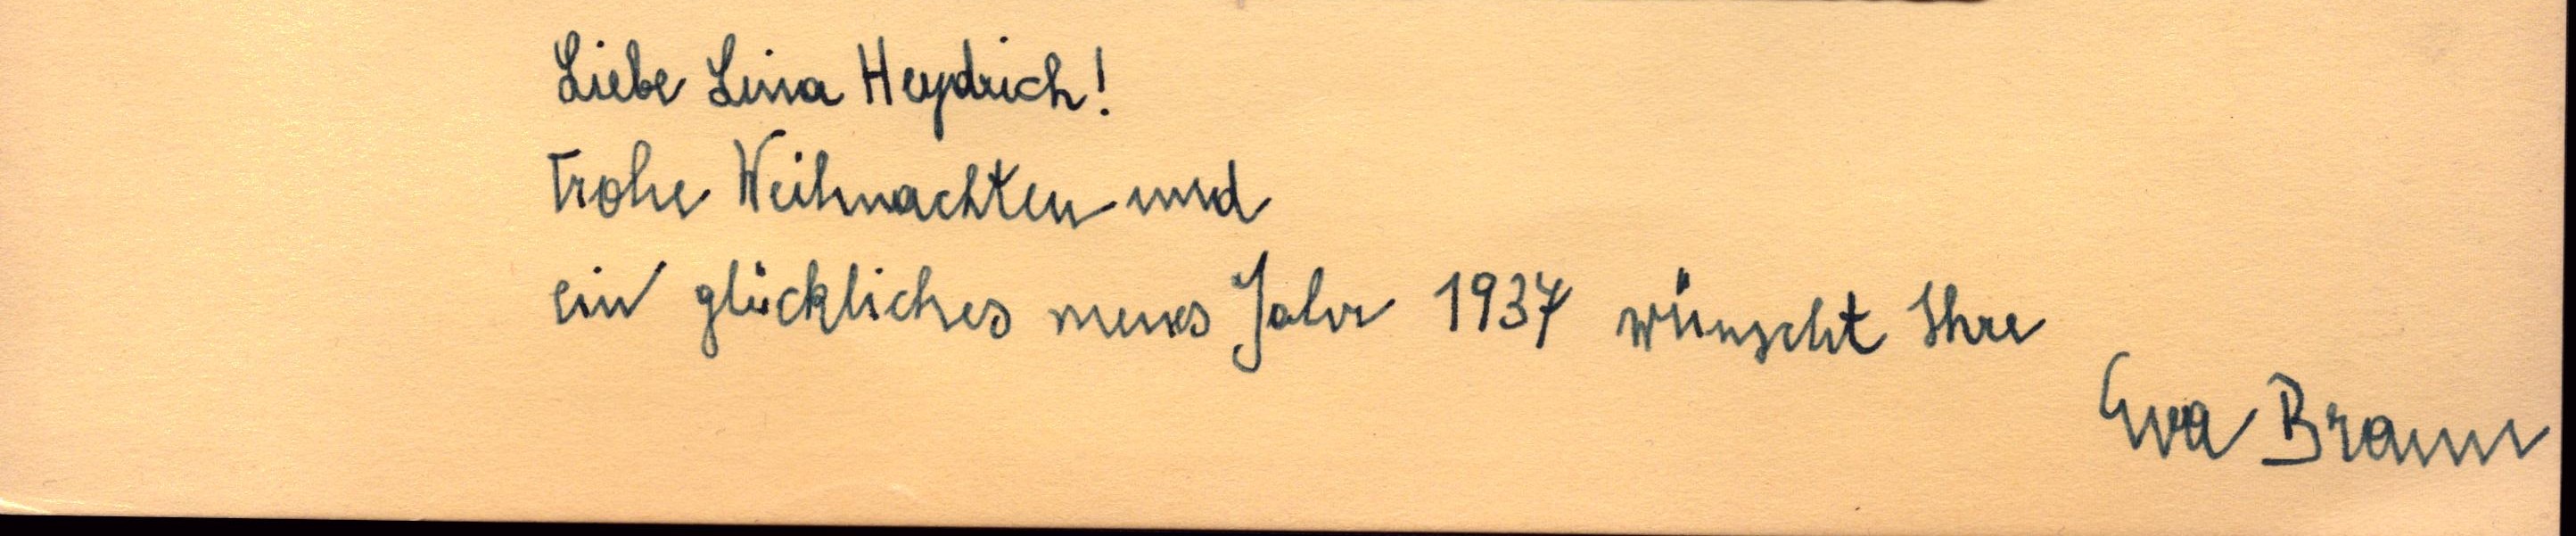 Liebe Lina Heydrich!
Frohe Weihnachten und
ein glückliches neues Jahr 1937 wünscht Ihre
Eva Braun